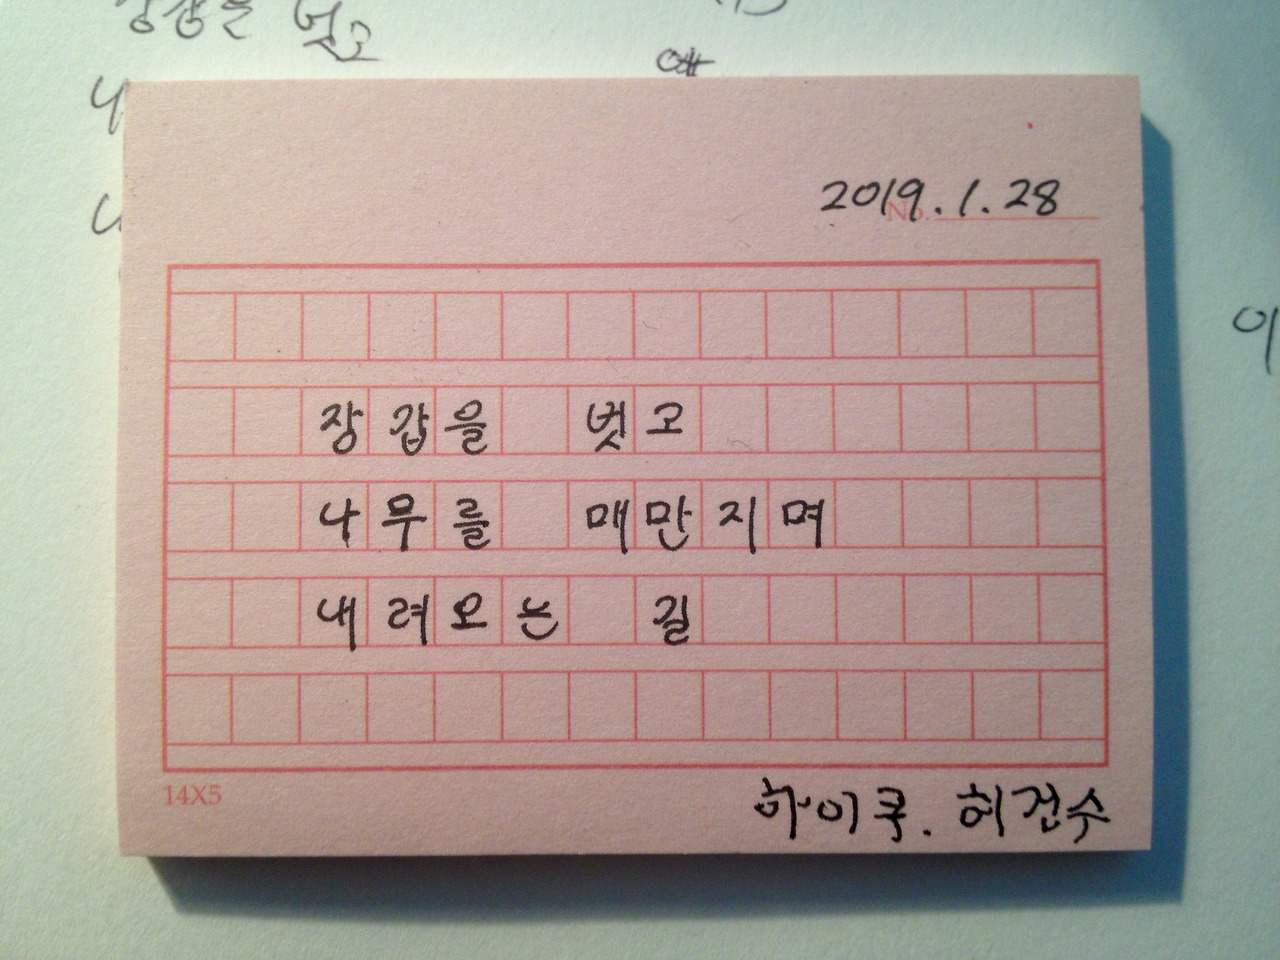 장갑을 벗고
예
2019.1.28
No.
장갑을 벗고
나무를 매만지며
내려오는 길
14X5
하이쿠. 허건수
이